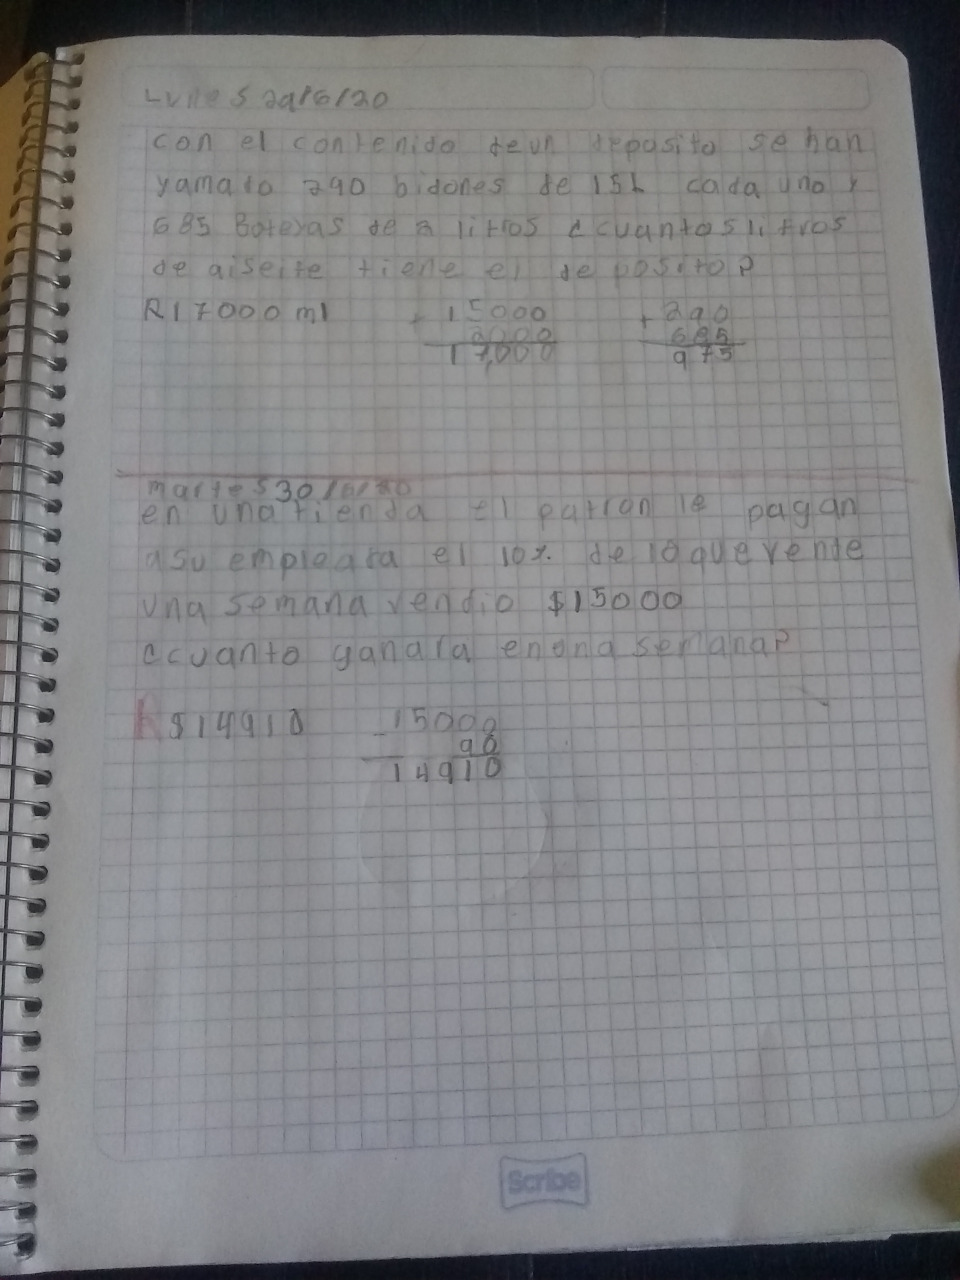 Lunes 29/6/20
con el contenido de un deposito se han
yamado 290 bidones de 15L cada uno y
685 Boteyas de 2 litros ¿cuantos litros
de aiseite tiene el deposito?
R17000 ml
+ 15000
2000
17,000
+ 290
685
975
martes 30/6/20
en una tienda el patran le pagan
a su empleada el 10% de lo que vende
una semana vendio $15000
¿cuanto ganara en una semana?
R $14910
- 15000
90
14910
Scribe